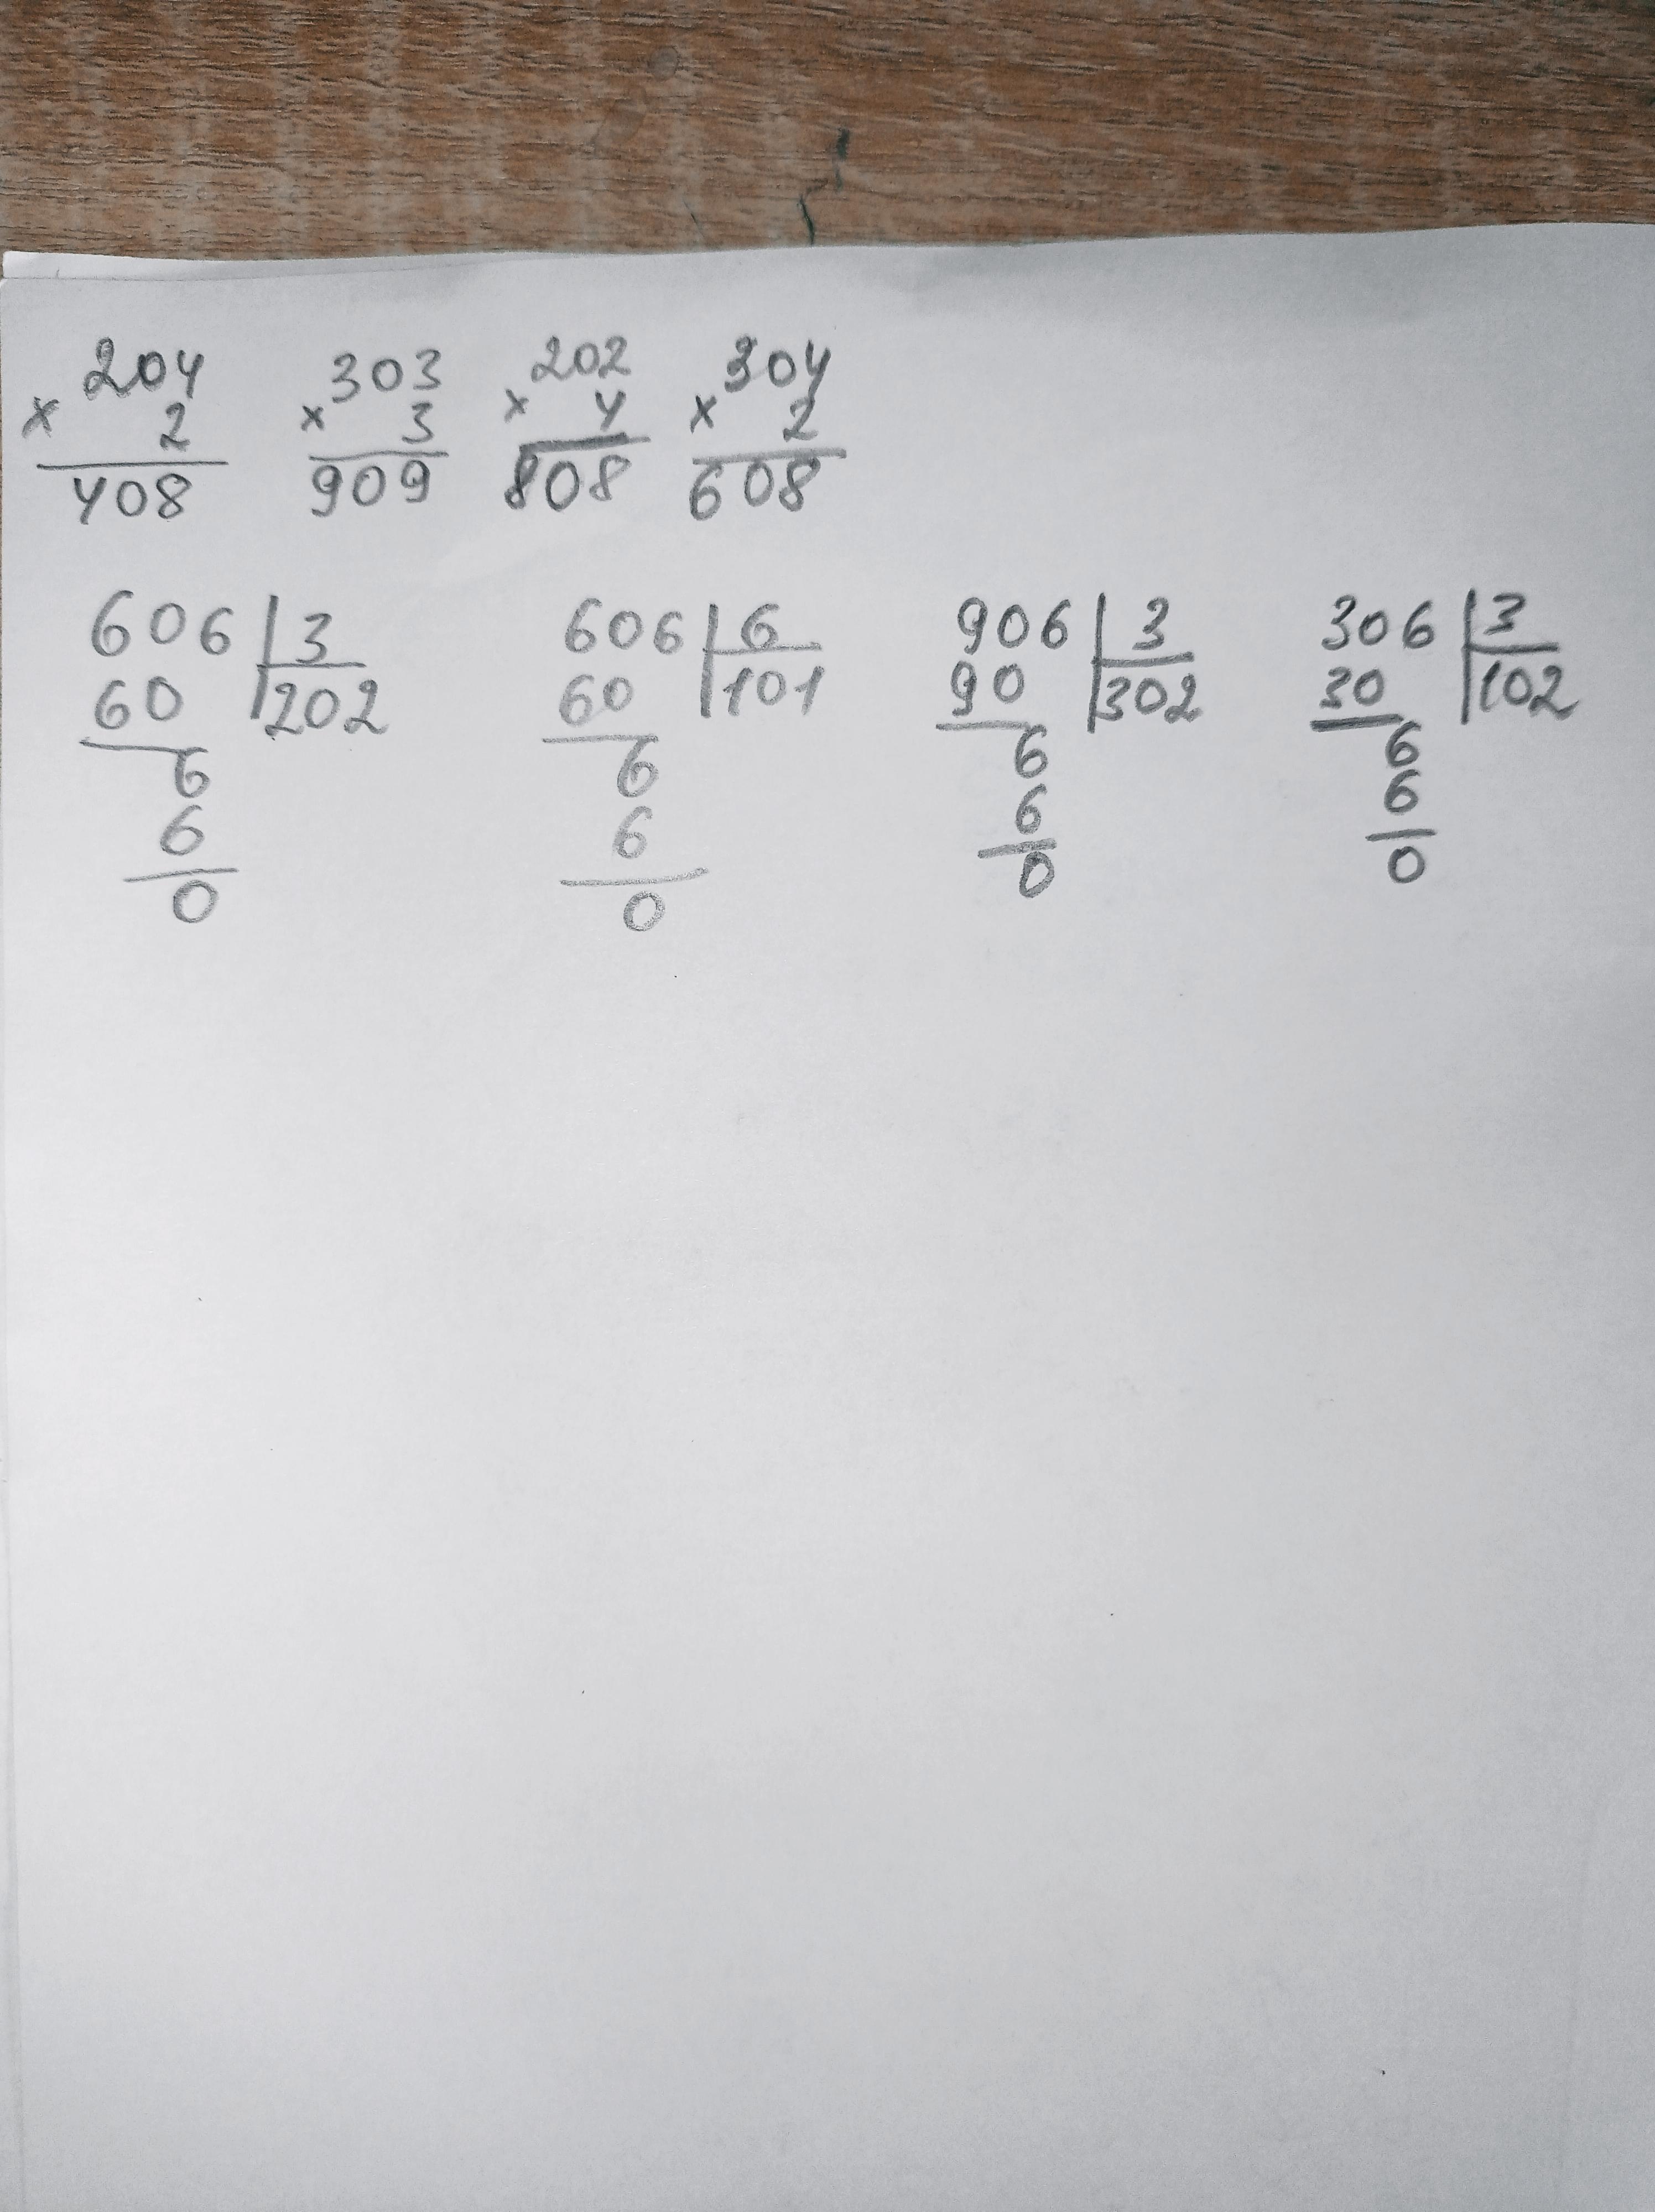 204 303 202 304
× 2 × 3 × 4 × 2
408 909 808 608
606 | 3 606 | 6 906 | 3 306 | 3
60 | 202 60 | 101 90 | 302 30 | 102
6 6 6 6
6 6 6 6
0 0 0 0